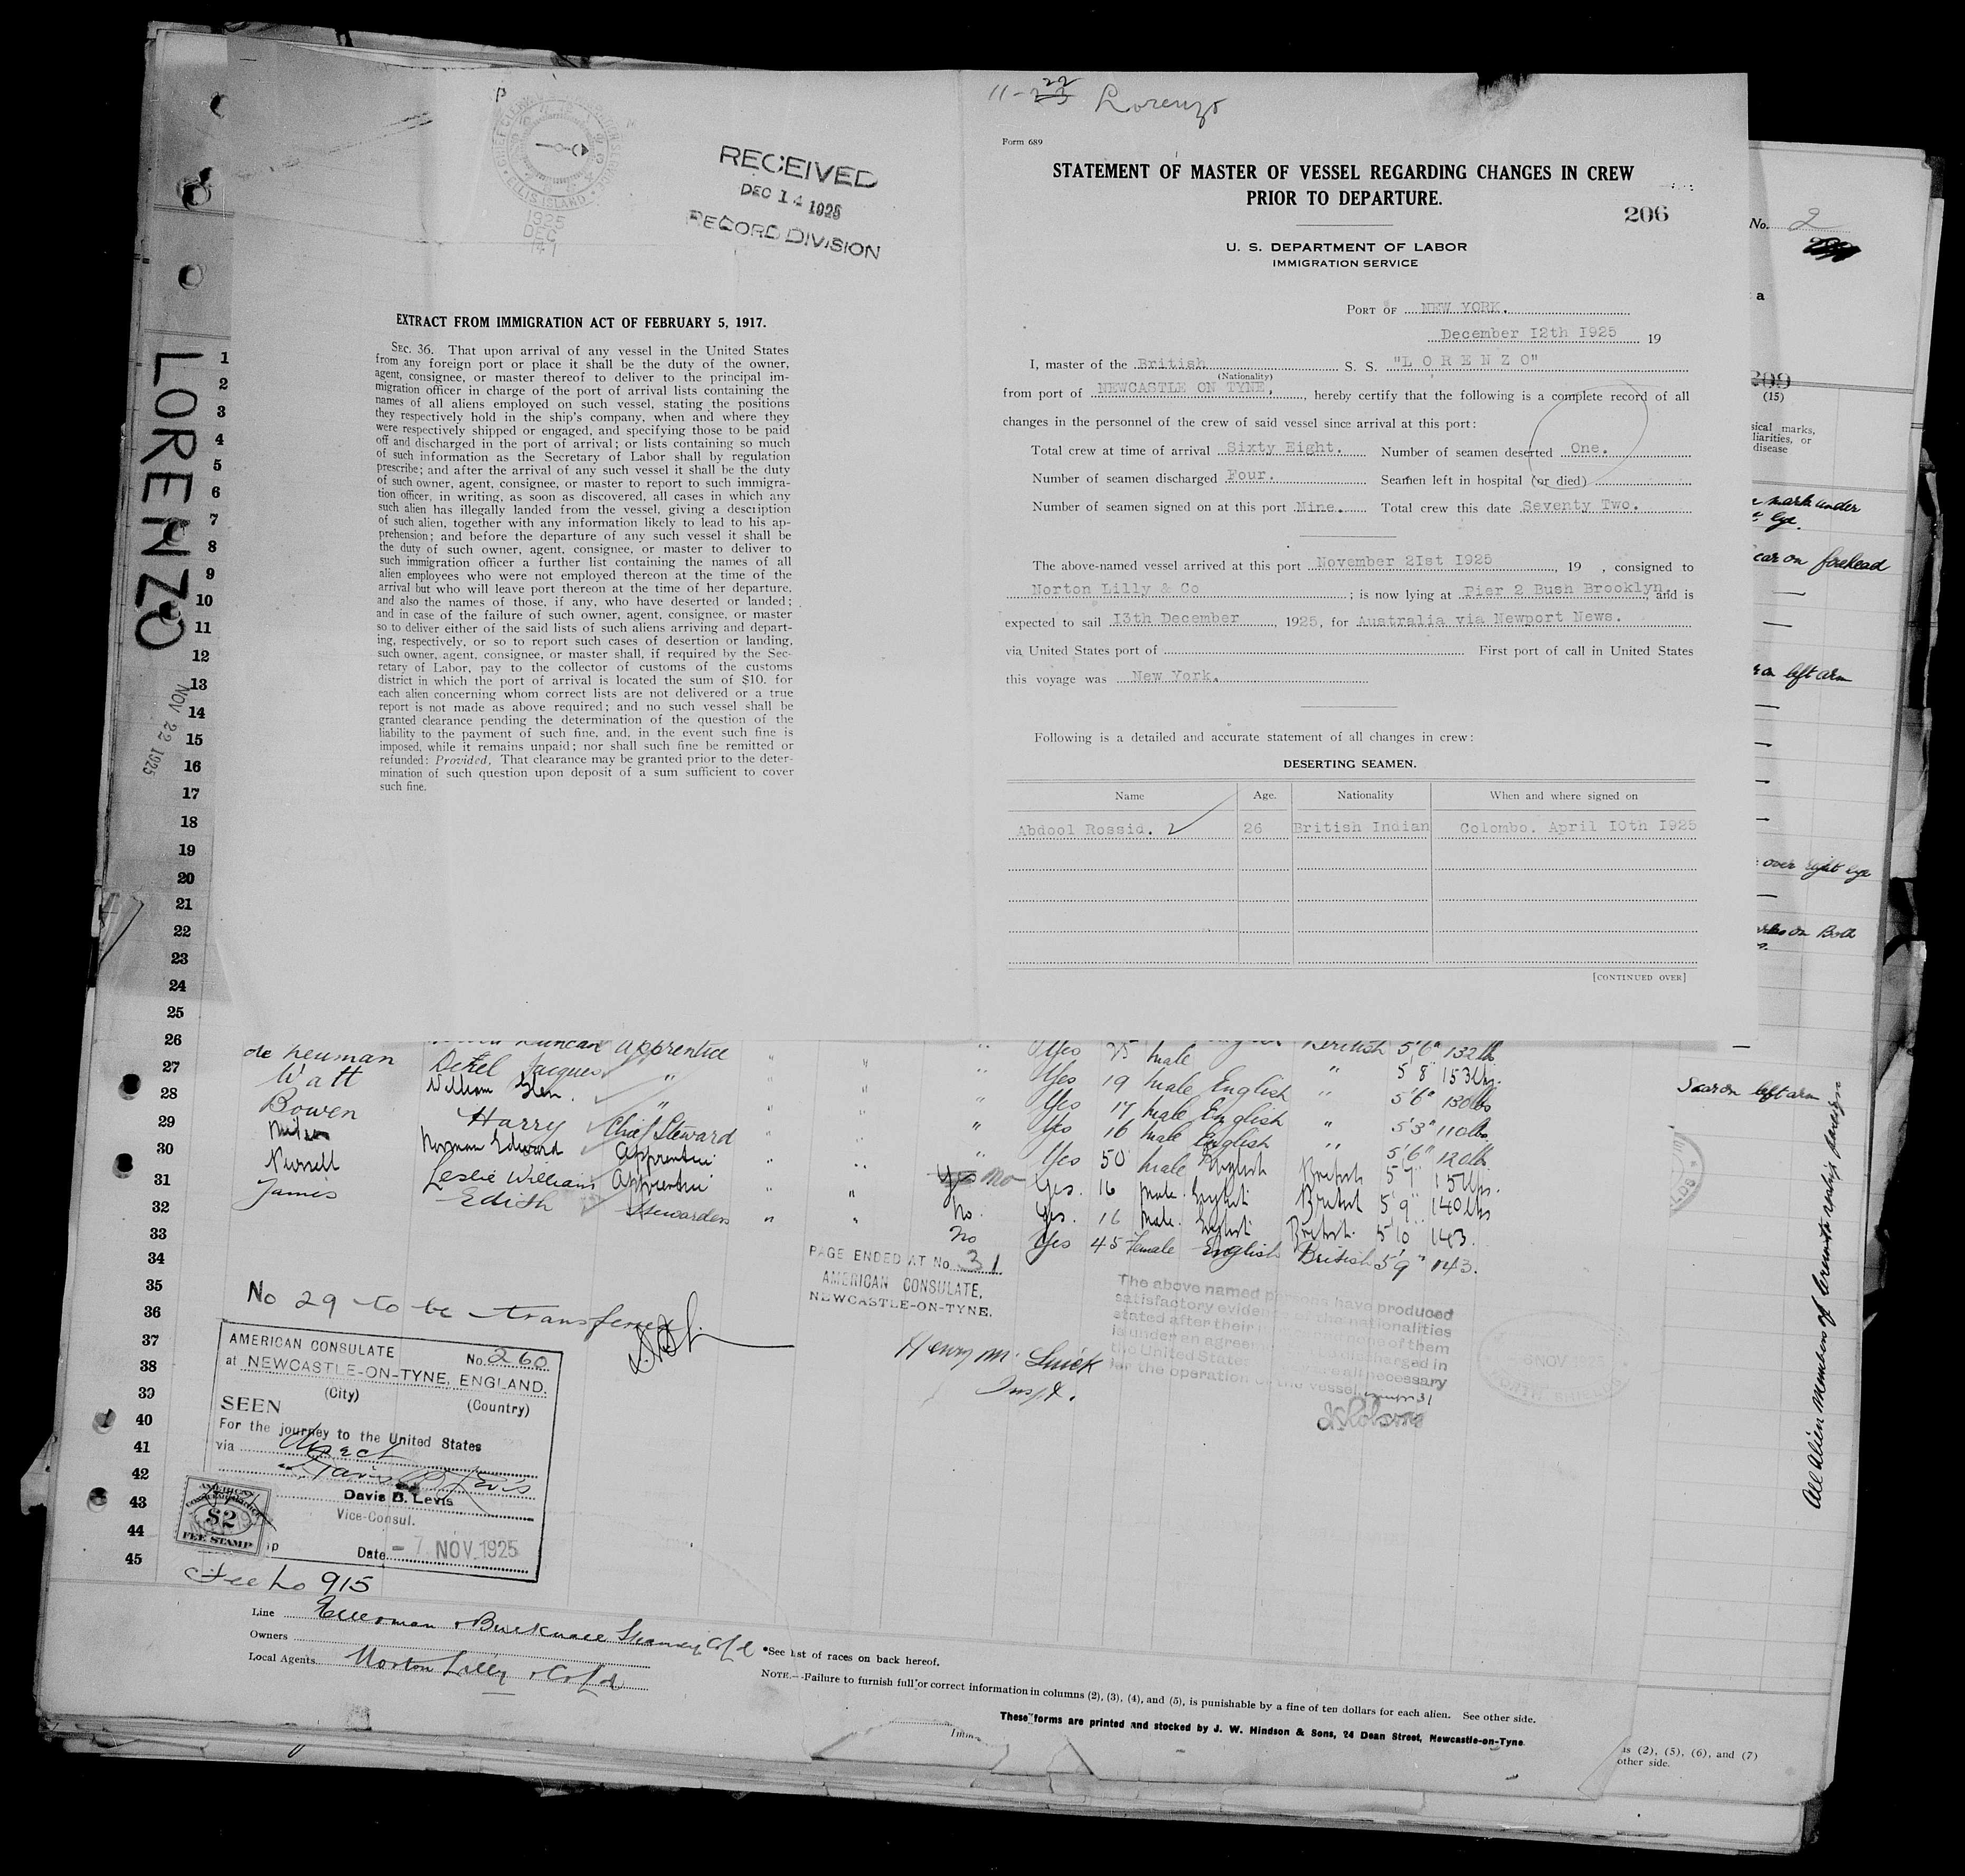 11-22 Lorenzo
RECEIVED
DEC 14 1925
RECORD DIVISION
ELLIS ISLAND
1925
DEC
14
EXTRACT FROM IMMIGRATION ACT OF FEBRUARY 5, 1917.
SEC. 36. That upon arrival of any vessel in the United States
from any foreign port or place it shall be the duty of the owner,
agent, consignee, or master thereof to deliver to the principal im-
migration officer in charge of the port of arrival lists containing the
names of all aliens employed on such vessel, stating the positions
they respectively hold in the ship's company, when and where they
were respectively shipped or engaged, and specifying those to be paid
off and discharged in the port of arrival; or lists containing so much
of such information as the Secretary of Labor shall by regulation
prescribe; and after the arrival of any such vessel it shall be the duty
of such owner, agent, consignee, or master to report to such immigra-
tion officer, in writing, as soon as discovered, all cases in which any
such alien has illegally landed from the vessel, giving a description
of such alien, together with any information likely to lead to his ap-
prehension; and before the departure of any such vessel it shall be
the duty of such owner, agent, consignee, or master to deliver to
such immigration officer a further list containing the names of all
alien employees who were not employed thereon at the time of the
arrival but who will leave port thereon at the time of her departure,
and also the names of those, if any, who have deserted or landed;
and in case of the failure of such owner, agent, consignee, or master
so to deliver either of the said lists of such aliens arriving and depart-
ing, respectively, or so to report such cases of desertion or landing,
such owner, agent, consignee, or master shall, if required by the Sec-
retary of Labor, pay to the collector of customs of the customs
district in which the port of arrival is located the sum of $10. for
each alien concerning whom correct lists are not delivered or a true
report is not made as above required; and no such vessel shall be
granted clearance pending the determination of the question of the
liability to the payment of such fine, and, in the event such fine is
imposed, while it remains unpaid; nor shall such fine be remitted or
refunded: Provided, That clearance may be granted prior to the deter-
mination of such question upon deposit of a sum sufficient to cover
such fine.
Form 689
STATEMENT OF MASTER OF VESSEL REGARDING CHANGES IN CREW
PRIOR TO DEPARTURE.
206
U. S. DEPARTMENT OF LABOR
IMMIGRATION SERVICE
PORT OF NEW YORK.
December 12th 1925 19
I, master of the British S. S. "LORENZO"
(Nationality)
from port of NEWCASTLE ON TYNE, hereby certify that the following is a complete record of all
changes in the personnel of the crew of said vessel since arrival at this port:
Total crew at time of arrival Sixty Eight. Number of seamen deserted One.
Number of seamen discharged Four. Seamen left in hospital (or died)
Number of seamen signed on at this port Nine. Total crew this date Seventy Two.
The above-named vessel arrived at this port November 21st 1925, 19 , consigned to
Norton Lilly & Co ; is now lying at Pier 2 Bush Brooklyn, and is
expected to sail 13th December, 1925, for Australia via Newport News.
via United States port of First port of call in United States
this voyage was New York.
Following is a detailed and accurate statement of all changes in crew:
DESERTING SEAMEN.
Name Age. Nationality When and where signed on
Abdool Rossid. 26 British Indian Colombo. April 10th 1925
[CONTINUED OVER]
LORENZO
NOV 22 1925
1
2
3
4
5
6
7
8
9
10
11
12
13
14
15
16
17
18
19
20
21
22
23
24
25
26
27
28
29
30
31
32
33
34
35
36
37
38
39
40
41
42
43
44
45
No. 2
a
209
(15)
sical marks,
liarities, or
disease
mark under
eye.
car on forehead
left arm
over right eye
on Both
Scar on left arm
Duncan Apprentice Yes male British 5'6" 132lb
de Neuman Jacques " Yes 19 male English " 5'8" 153lbs.
Watt William Glen. " Yes 17 male English " 5'6" 130lbs
Bowen Harry Chief Steward " Yes 16 male English " 5'3" 110lbs
Norman Edward Apprentice Yes 50 male English British 5'6" 120lb
Leslie William Apprentice No Yes. 16 male. English British 5'9" 140lbs
James Edith Stewardess " " No Yes 45 Female English British 5'9" 143.
PAGE ENDED AT No. 31
AMERICAN CONSULATE,
NEWCASTLE-ON-TYNE.
The above named persons have produced
satisfactory evidence nationalities
stated after their none of them
is under an agreement discharged in
the United States are all necessary
for the operation of the vessel
No 29 to be transferred
Henry M.
Insp.
AMERICAN CONSULATE No. 260
at NEWCASTLE-ON-TYNE, ENGLAND.
(City) (Country)
SEEN
For the journey to the United States
via direct
Davis B. Levis
Davis B. Levis
Vice-Consul.
Date - 7 NOV. 1925
AMERICAN
$2
FEE STAMP
Fee No 915
Line Ellerman & Bucknall Steamship Co Ld
Owners
Local Agents Norton Lilly & Co Ld
*See list of races on back hereof.
NOTE.—Failure to furnish full or correct information in columns (2), (3), (4), and (5), is punishable by a fine of ten dollars for each alien. See other side.
These forms are printed and stocked by J. W. Hindson & Sons, 24 Dean Street, Newcastle-on-Tyne.
(2), (5), (6), and (7)
other side.